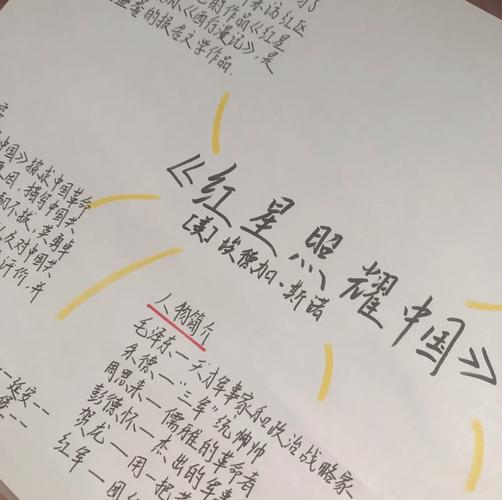 访红区
的作品《红星
《西行漫记》,是
的报告文学作品.
中国》探求中国革命
因,描写中国共
不拔,英勇卓
以及对中国共
评价,并
《红星照耀中国》
[美]埃德加·斯诺
人物简介
毛泽东—天才军事家和政治战略家
朱德—"三军"统帅
周恩来—儒雅的革命者
彭德怀—杰出的军事
贺龙—用一把菜
红军—团
--延安--